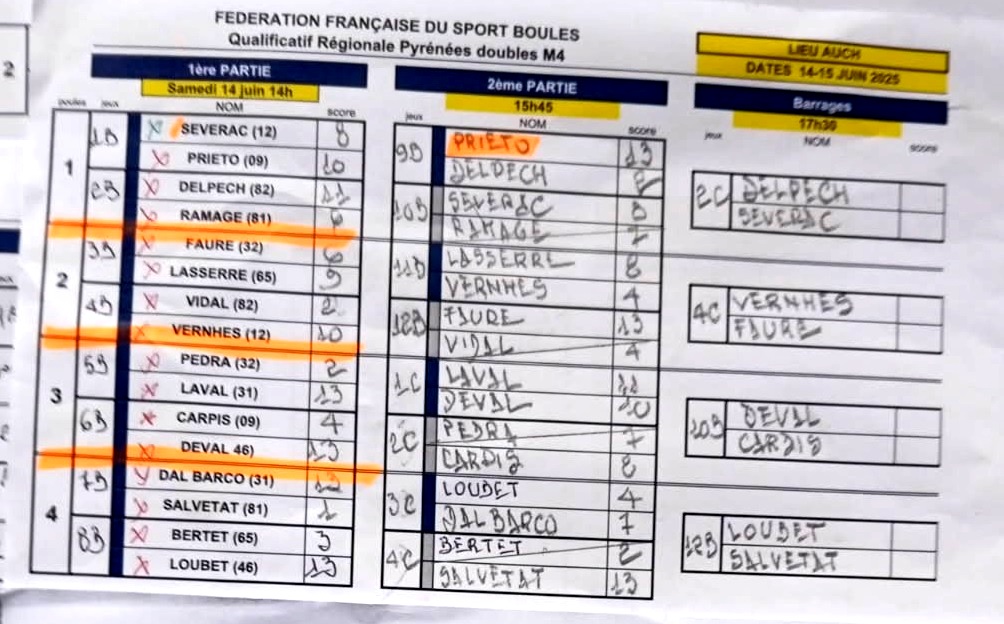 FEDERATION FRANÇAISE DU SPORT BOULES
Qualificatif Régionale Pyrénées doubles M4
LIEU AUCH
DATES 14-15 JUIN 2025
2
1ère PARTIE
Samedi 14 juin 14h
poules jeux NOM score
1
1B SEVERAC (12) 8
PRIETO (09) 10
2B DELPECH (82) 11
RAMAGE (81) 6
2
3B FAURE (32) 6
LASSERRE (65) 9
4B VIDAL (82) 2
VERNHES (12) 10
3
5B PEDRA (32) 2
LAVAL (31) 13
6B CARPIS (09) 4
DEVAL 46) 13
4
7B DAL BARCO (31) 12
SALVETAT (81) 1
8B BERTET (65) 3
LOUBET (46) 13
2ème PARTIE
15h45
jeux NOM score
9B PRIETO 13
DELPECH
10B SEVERAC 8
RAMAGE 7
11B LASSERRE 8
VERNHES 4
12B FAURE 13
VIDAL 4
1C LAVAL 11
DEVAL 10
2C PEDRA 7
CARPIS 8
3C LOUBET 4
DAL BARCO 7
4C BERTET 2
SALVETAT 13
Barrages
17h30
jeux NOM score
2C DELPECH
SEVERAC
4C VERNHES
FAURE
10B DEVAL
CARPIS
12B LOUBET
SALVETAT